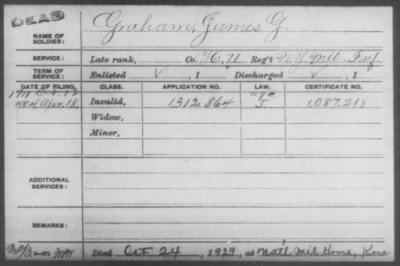 DEAD
NAME OF SOLDIER: Graham, James G.
SERVICE: Late rank, Co. Reg't N.Y. Mil. Inf.
TERM OF SERVICE: Enlisted , 1 Discharged , 1
DATE OF FILING. CLASS. APPLICATION NO. LAW. CERTIFICATE NO.
Apr. 18, Invalid, 1,312,864 1,087,218
Widow,
Minor,
ADDITIONAL SERVICES:
REMARKS:
Died Oct 24, 1929, at Nat'l Mil Home, Kans